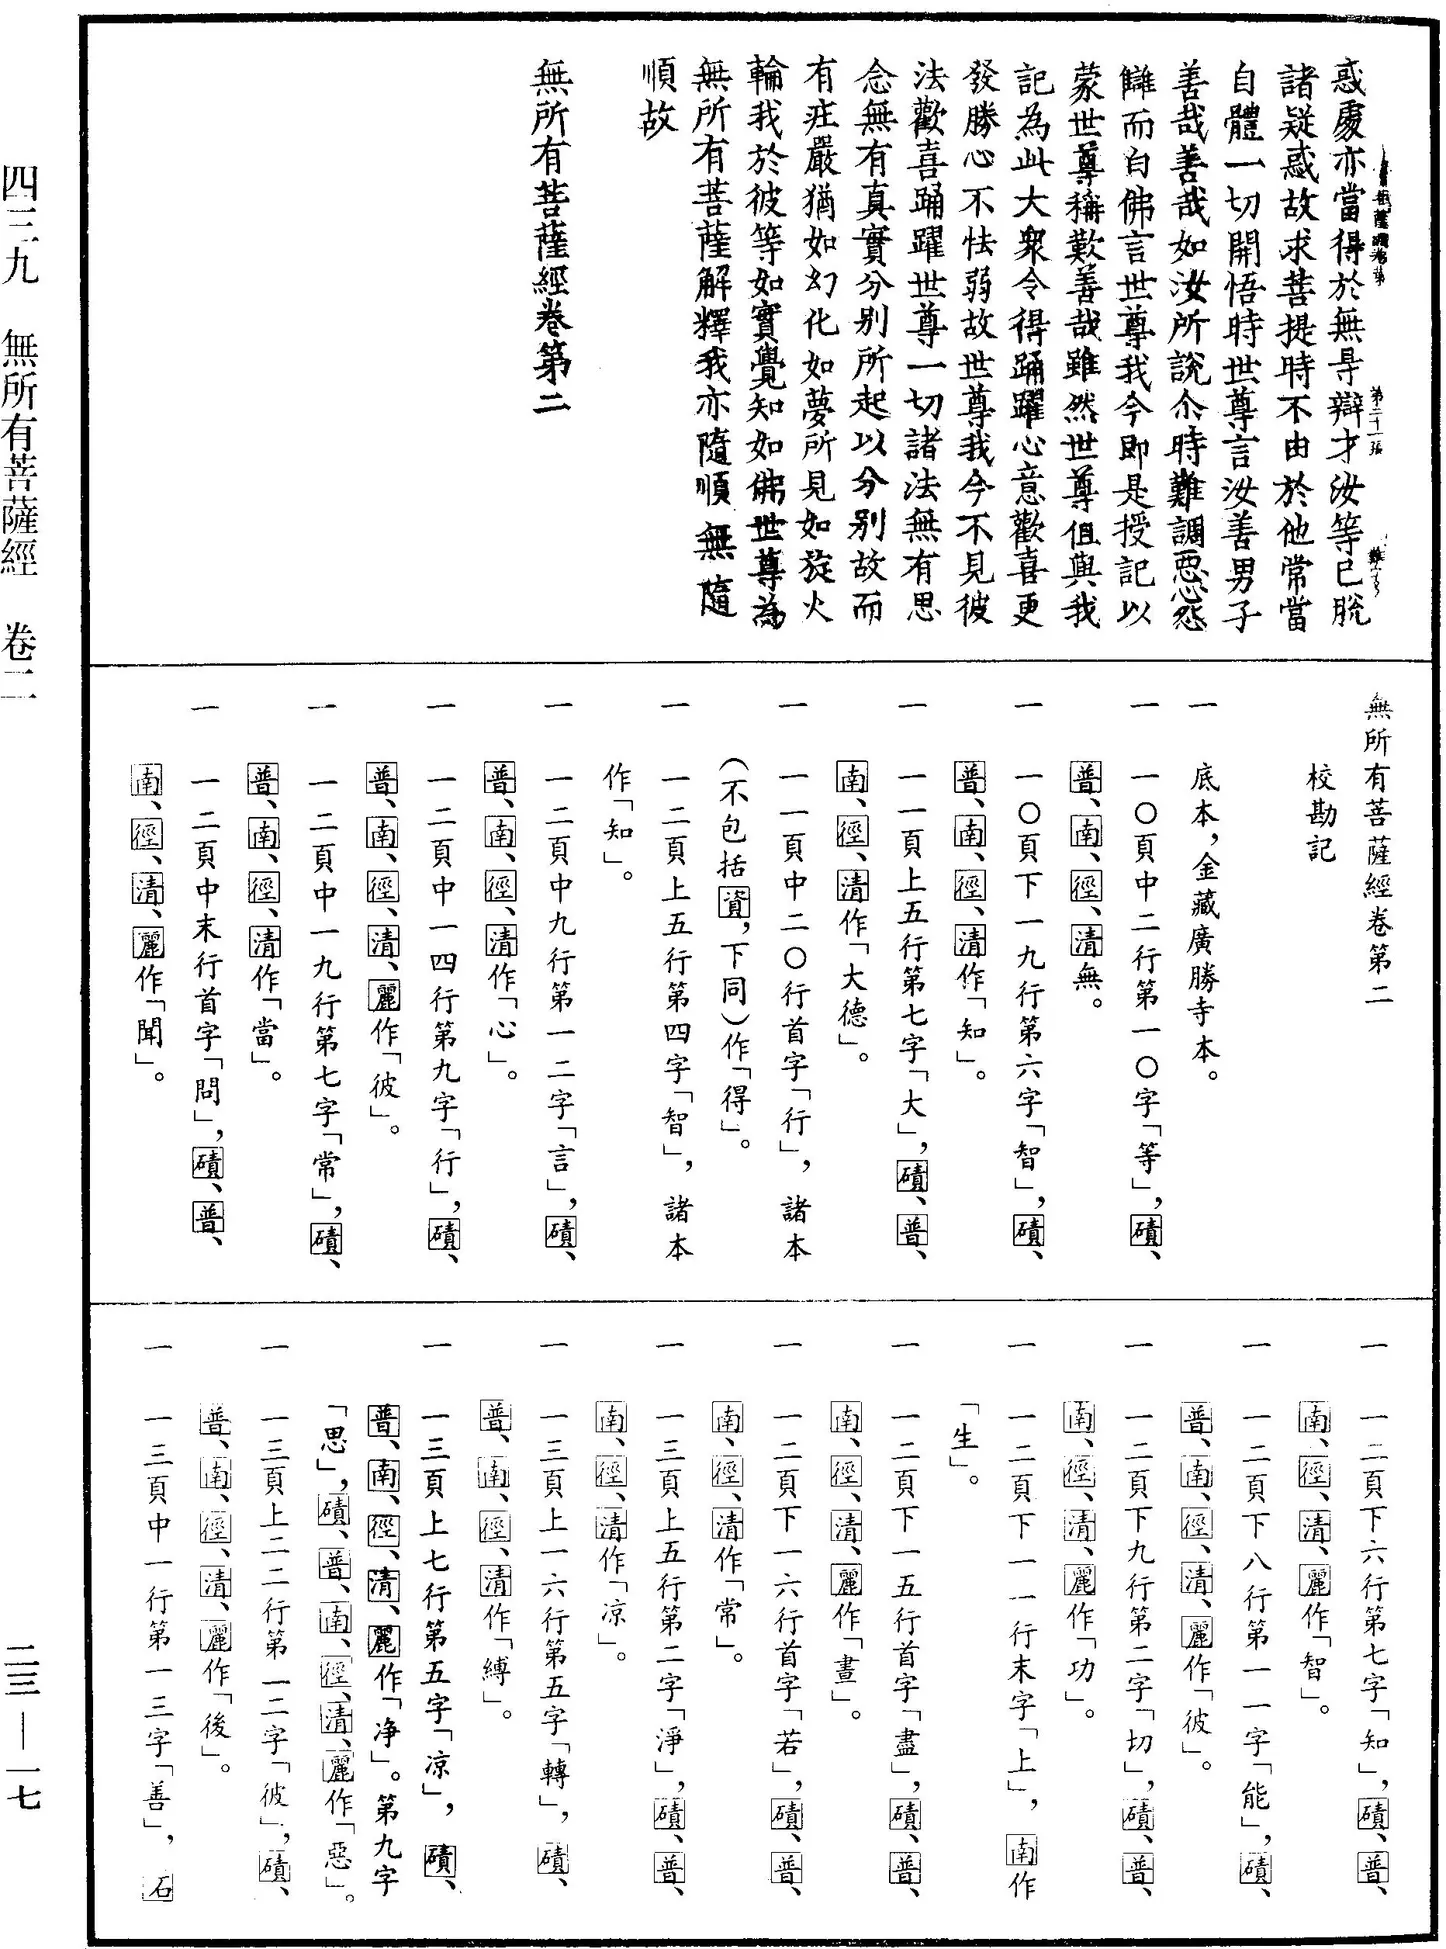 惑處亦當得於無㝵辯才汝等已脫
諸疑惑故求菩提時不由於他常當
自體一切開悟時世尊言汝善男子
善哉善哉如汝所說尒時難調惡怨
讎而白佛言世尊我今即是授記以
蒙世尊稱歎善哉雖然世尊但與我
記為此大衆令得踊躍心意歡喜更
發勝心不怯弱故世尊我今不見彼
法歡喜踊躍世尊一切諸法無有思
念無有真實分別所起以分別故而
有庄嚴猶如幻化如夢所見如旋火
輪我於彼等如實覺知如佛世尊為
無所有菩薩解釋我亦隨順無隨
順故
無所有菩薩經卷第二
無所有菩薩經卷第二
校勘記
一　底本，金藏廣勝寺本。
一　一〇頁中二行第一〇字「等」，磧、
普、南、徑、清無。
一　一〇頁下一九行第六字「智」，磧、
普、南、徑、清作「知」。
一　一一頁上五行第七字「大」，磧、普、
南、徑、清作「大德」。
一　一一頁中二〇行首字「行」，諸本
（不包括資，下同）作「得」。
一　一二頁上五行第四字「智」，諸本
作「知」。
一　一二頁中九行第一二字「言」，磧、
普、南、徑、清作「心」。
一　一二頁中一四行第九字「行」，磧、
普、南、徑、清、麗作「彼」。
一　一二頁中一九行第七字「常」，磧、
普、南、徑、清作「當」。
一　一二頁中末行首字「問」，磧、普、
南、徑、清、麗作「聞」。
一　一二頁下六行第七字「知」，磧、普、
南、徑、清、麗作「智」。
一　一二頁下八行第一一字「能」，磧、
普、南、徑、清、麗作「彼」。
一　一二頁下九行第二字「切」，磧、普、
南、徑、清、麗作「功」。
一　一二頁下一一行末字「上」，南作
「生」。
一　一二頁下一五行首字「盡」，磧、普、
南、徑、清、麗作「晝」。
一　一二頁下一六行首字「若」，磧、普、
南、徑、清作「常」。
一　一三頁上五行第二字「淨」，磧、普、
南、徑、清作「凉」。
一　一三頁上一六行第五字「轉」，磧、
普、南、徑、清作「縛」。
一　一三頁上七行第五字「凉」，磧、
普、南、徑、清、麗作「净」。第九字
「思」，磧、普、南、徑、清、麗作「惡」。
一　一三頁上二二行第一二字「彼」，磧、
普、南、徑、清、麗作「後」。
一　一三頁中一行第一三字「善」，石
四三九　無所有菩薩經　卷二
二三—一七